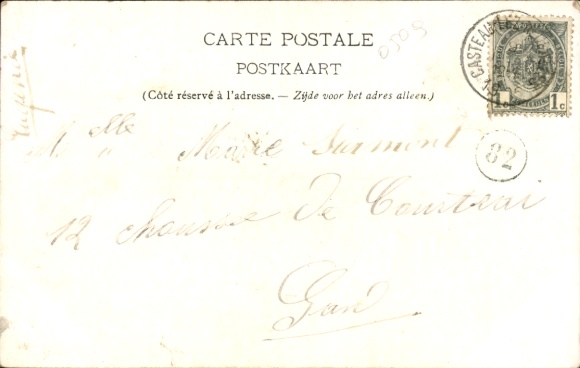 CARTE POSTALE
POSTKAART
(Côté réservé à l'adresse. — Zijde voor het adres alleen.)
0509
CASTEAU
1c 1c
82
Eugénie
Melle
12 Chaussée De Courtrai
Gand